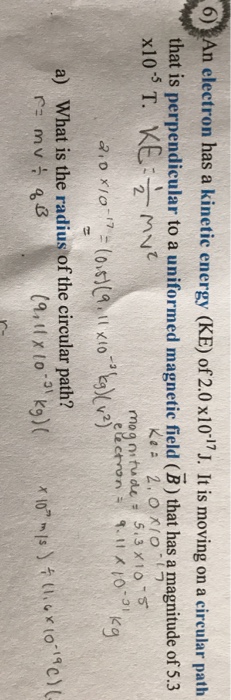 6) An electron has a kinetic energy (KE) of 2.0 x10⁻¹⁷ J. It is moving on a circular path
that is perpendicular to a uniformed magnetic field (B⃗) that has a magnitude of 5.3
x10⁻⁵ T. KE = 1/2 mv²
Ke = 2.0 x 10⁻¹⁷
magnitude = 5.3 x 10⁻⁵
electron = 9.11 x 10⁻³¹ kg
2.0 x 10⁻¹⁷ = (0.5)(9.11 x 10⁻³¹ kg)(v²)
a) What is the radius of the circular path?
r = mv ÷ qB
(9.11 x 10⁻³¹ kg)( x 10 m/s) ÷ (1.6 x 10⁻¹⁹ C)(
r